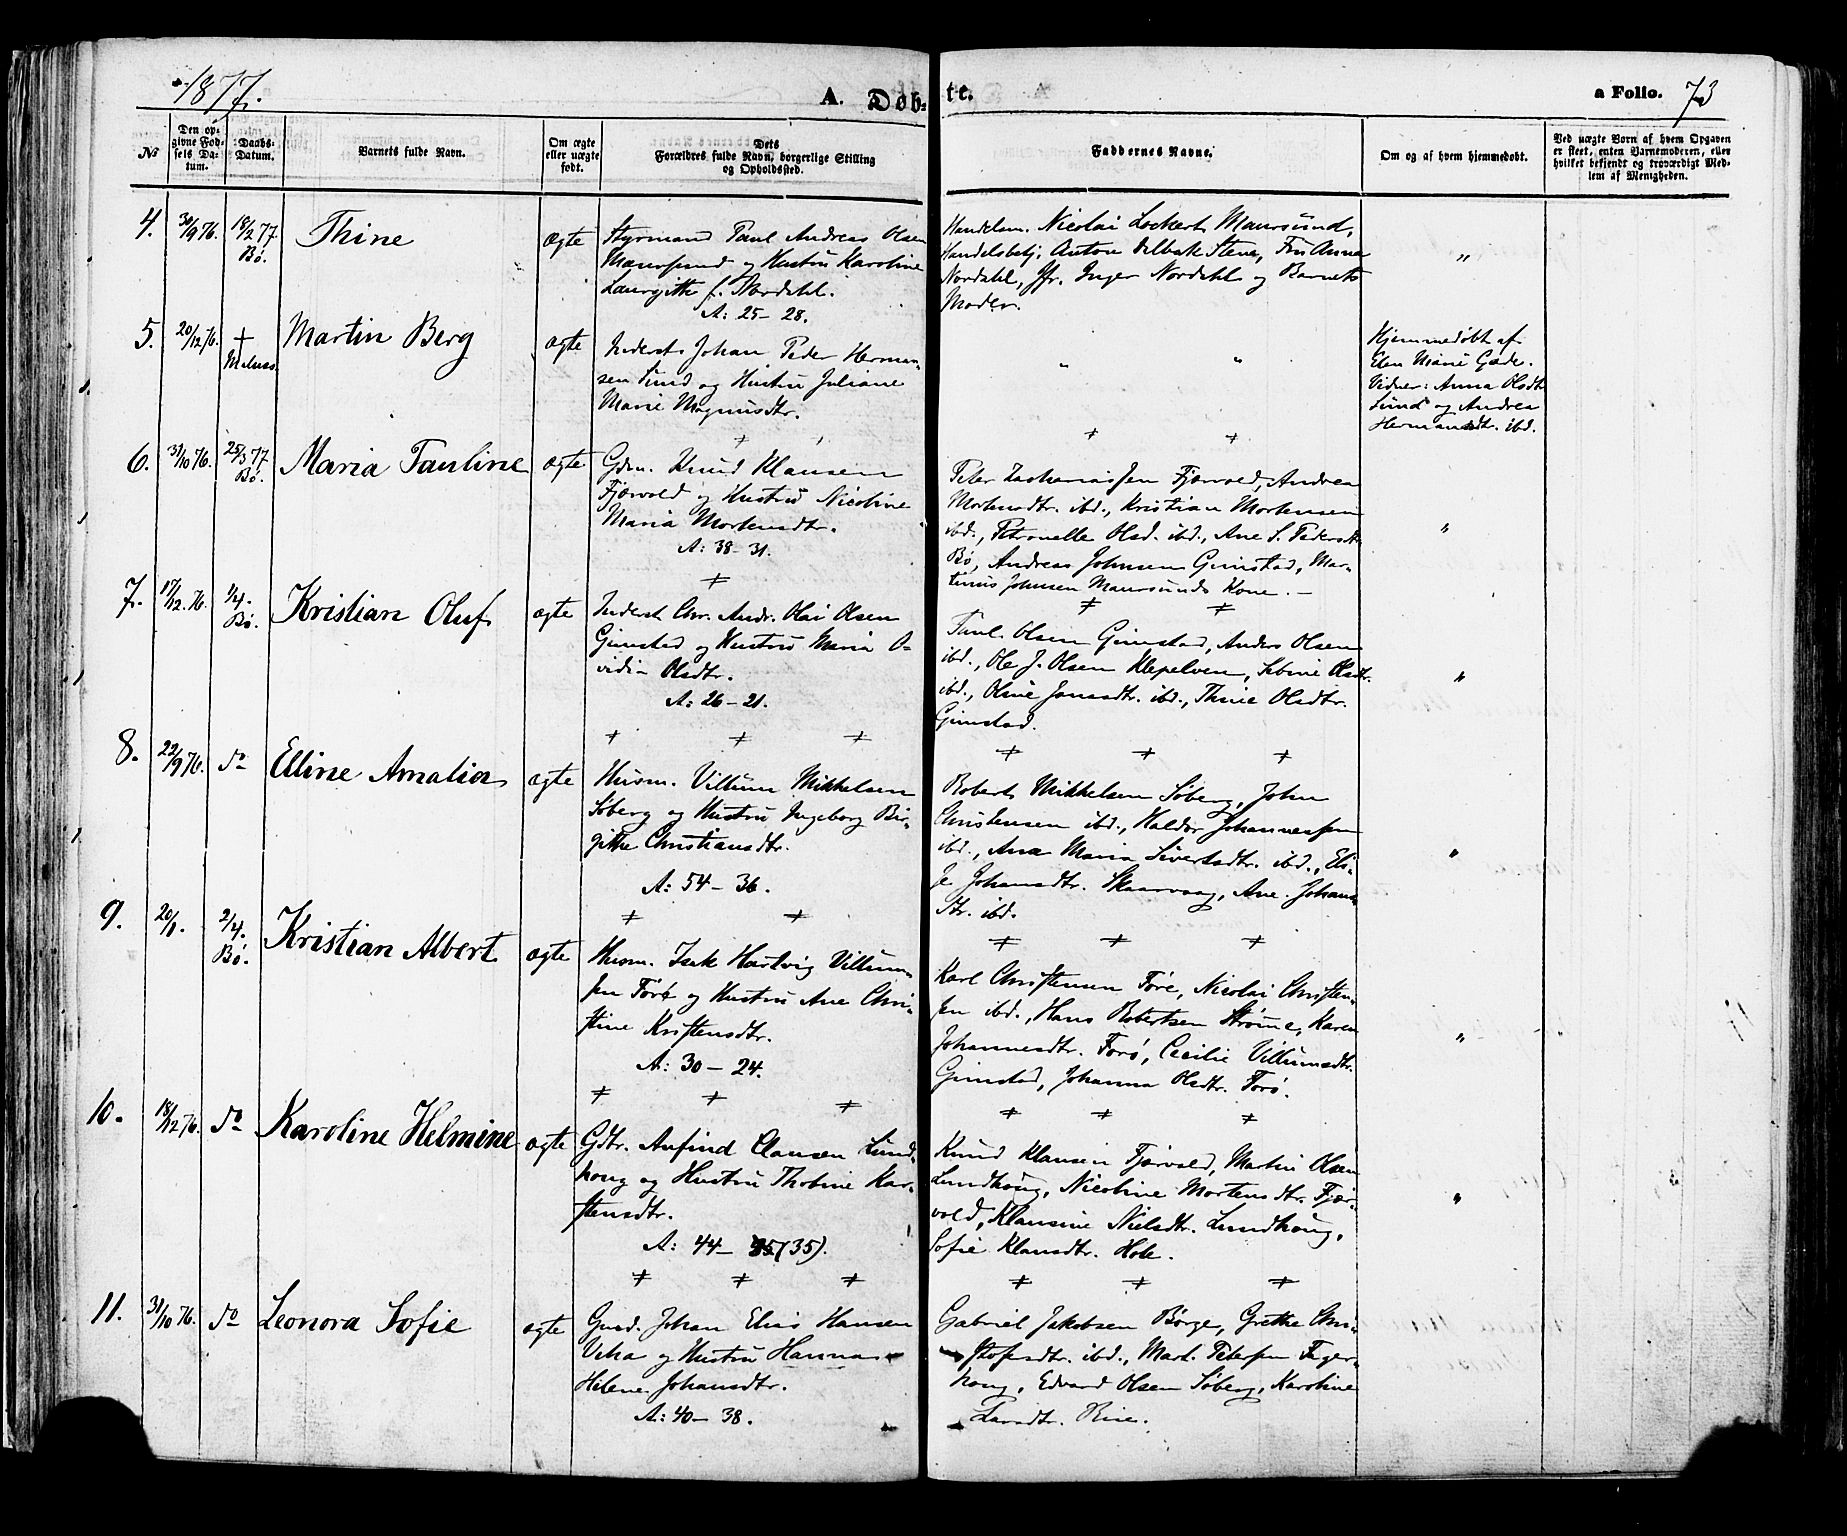 1877.
A. Døbte.
a Folio. 73
No
Den op-
givne Fød-
sels Da-
tum.
Daabs-
Datum.
Barnets fulde Navn.
Om ægte
eller uægte
født.
Dets
Forældres fulde Navn, borgerlige Stilling
og Opholdssted.
Faddernes Navne.
Om og af hvem hjemmedøbt.
Ved uægte Børn af hvem Opgaven
er skeet, enten Barnemoderen, eller
hvilket bekjendt og troværdigt Med-
lem af Menigheden.
4. 30/9 76. 18/2 77. Bø. Thine Ægte
Styrmand Paul Andreas Olsen
Maursund og Hustru Karoline
Laurgitte f. Nordahl.
A: 25 – 28.
Handelsm. Nicolai Lockert Maursund,
Handelsbetj. Anton Delbak Stene, Fru Anna
Nordahl, Jfr. Inger Nordahl og Barnets
Moder.
"
5. 20/12 76. + Melnes. Martin Berg ægte
Inderst Johan Peder Herman-
sen Sund og Hustru Juliane
Marie Magnusdtr.
" "
Hjemmedøbt af
Elen Marie Gæde.
Vidner: Anna Olsdtr
Sund og Andrea
Hermansdtr. ibd.
6. 31/10 76. 25/3 77. Bø. Maria Pauline ægte
Gdm. Knud Klausen
Fjærvold og Hustru Nicoline
Maria Mortensdtr.
A: 38 – 31.
Peter Zachariassen Fjærvold, Andrea
Mortensdtr. ibd., Kristian Mortensen
ibd., Petronelle Olsd. ibd., Ane S. Pedersdtr
Bø, Andreas Johnsen Gimstad, Mar-
tinus Johnsen Maursunds Kone. –
"
7. 17/12 76. 1/4. Bø. Kristian Oluf ægte
Inderst Chr. Andr. Olai Olsen
Gimstad og Hustru Maria O-
vidia Olsdtr.
A: 26 – 21.
Paul Olsen Gimstad, Anders Olsen
ibd., Ole J. Olsen Klepelven, Sebine Olsdtr.
ibd., Oline Jonasdtr. ibd., Thine Olsdtr.
Gimstad.
"
8. 22/9 76. do Elline Amalia ægte
Husm. Villum Mikkelsen
Søberg og Hustru Ingeborg Bir-
gitte Christiansdtr.
A: 54 – 36.
Robert Mikkelsen Søberg, John
Christensen ibd., Haldor Johannessen
ibd., Ana Maria Sivertsdtr. ibd., Eli-
se Johansdtr. Skaarvaag, Ane Johans-
dtr. ibd.
"
9. 20/1. 2/4. Bø. Kristian Albert ægte
Husm. Isak Hartvig Villum-
sen Førø og Hustru Ane Chri-
stine Kristensdtr.
A: 30 – 24.
Karl Christensen Føre, Nicolai Christen-
sen ibd., Hans Robertsen Strøme, Karen
Johannesdtr. Forø, Cecilie Villumsdtr.
Gimstad, Johanna Olsdtr. Forø.
"
10. 18/12 76. do Karoline Helmine ægte
Gdbr. Anfind Clausen Lund-
houg og Hustru Thobine Kar-
stensdtr.
A: 44 – 35 (35).
Knud Klausen Fjærvold, Martin Olsen
Lundhoug, Nicoline Mortensdtr. Fjær-
vold, Klausine Nielsdtr. Lundhoug,
Sofie Klausdtr. Hole.
"
11. 31/10 76. do Leonora Sofie ægte
Gmd. Johan Elias Hansen
Veha og Hustru Hanna
Helene Johansdtr.
A: 40 – 38.
Gabriel Jakobsen Børge, Grethe Chri-
stofersdtr. ibd., Mart. Petersen Fager-
houg, Edvard Olsen Søberg, Karoline
Larsdtr. Rise.